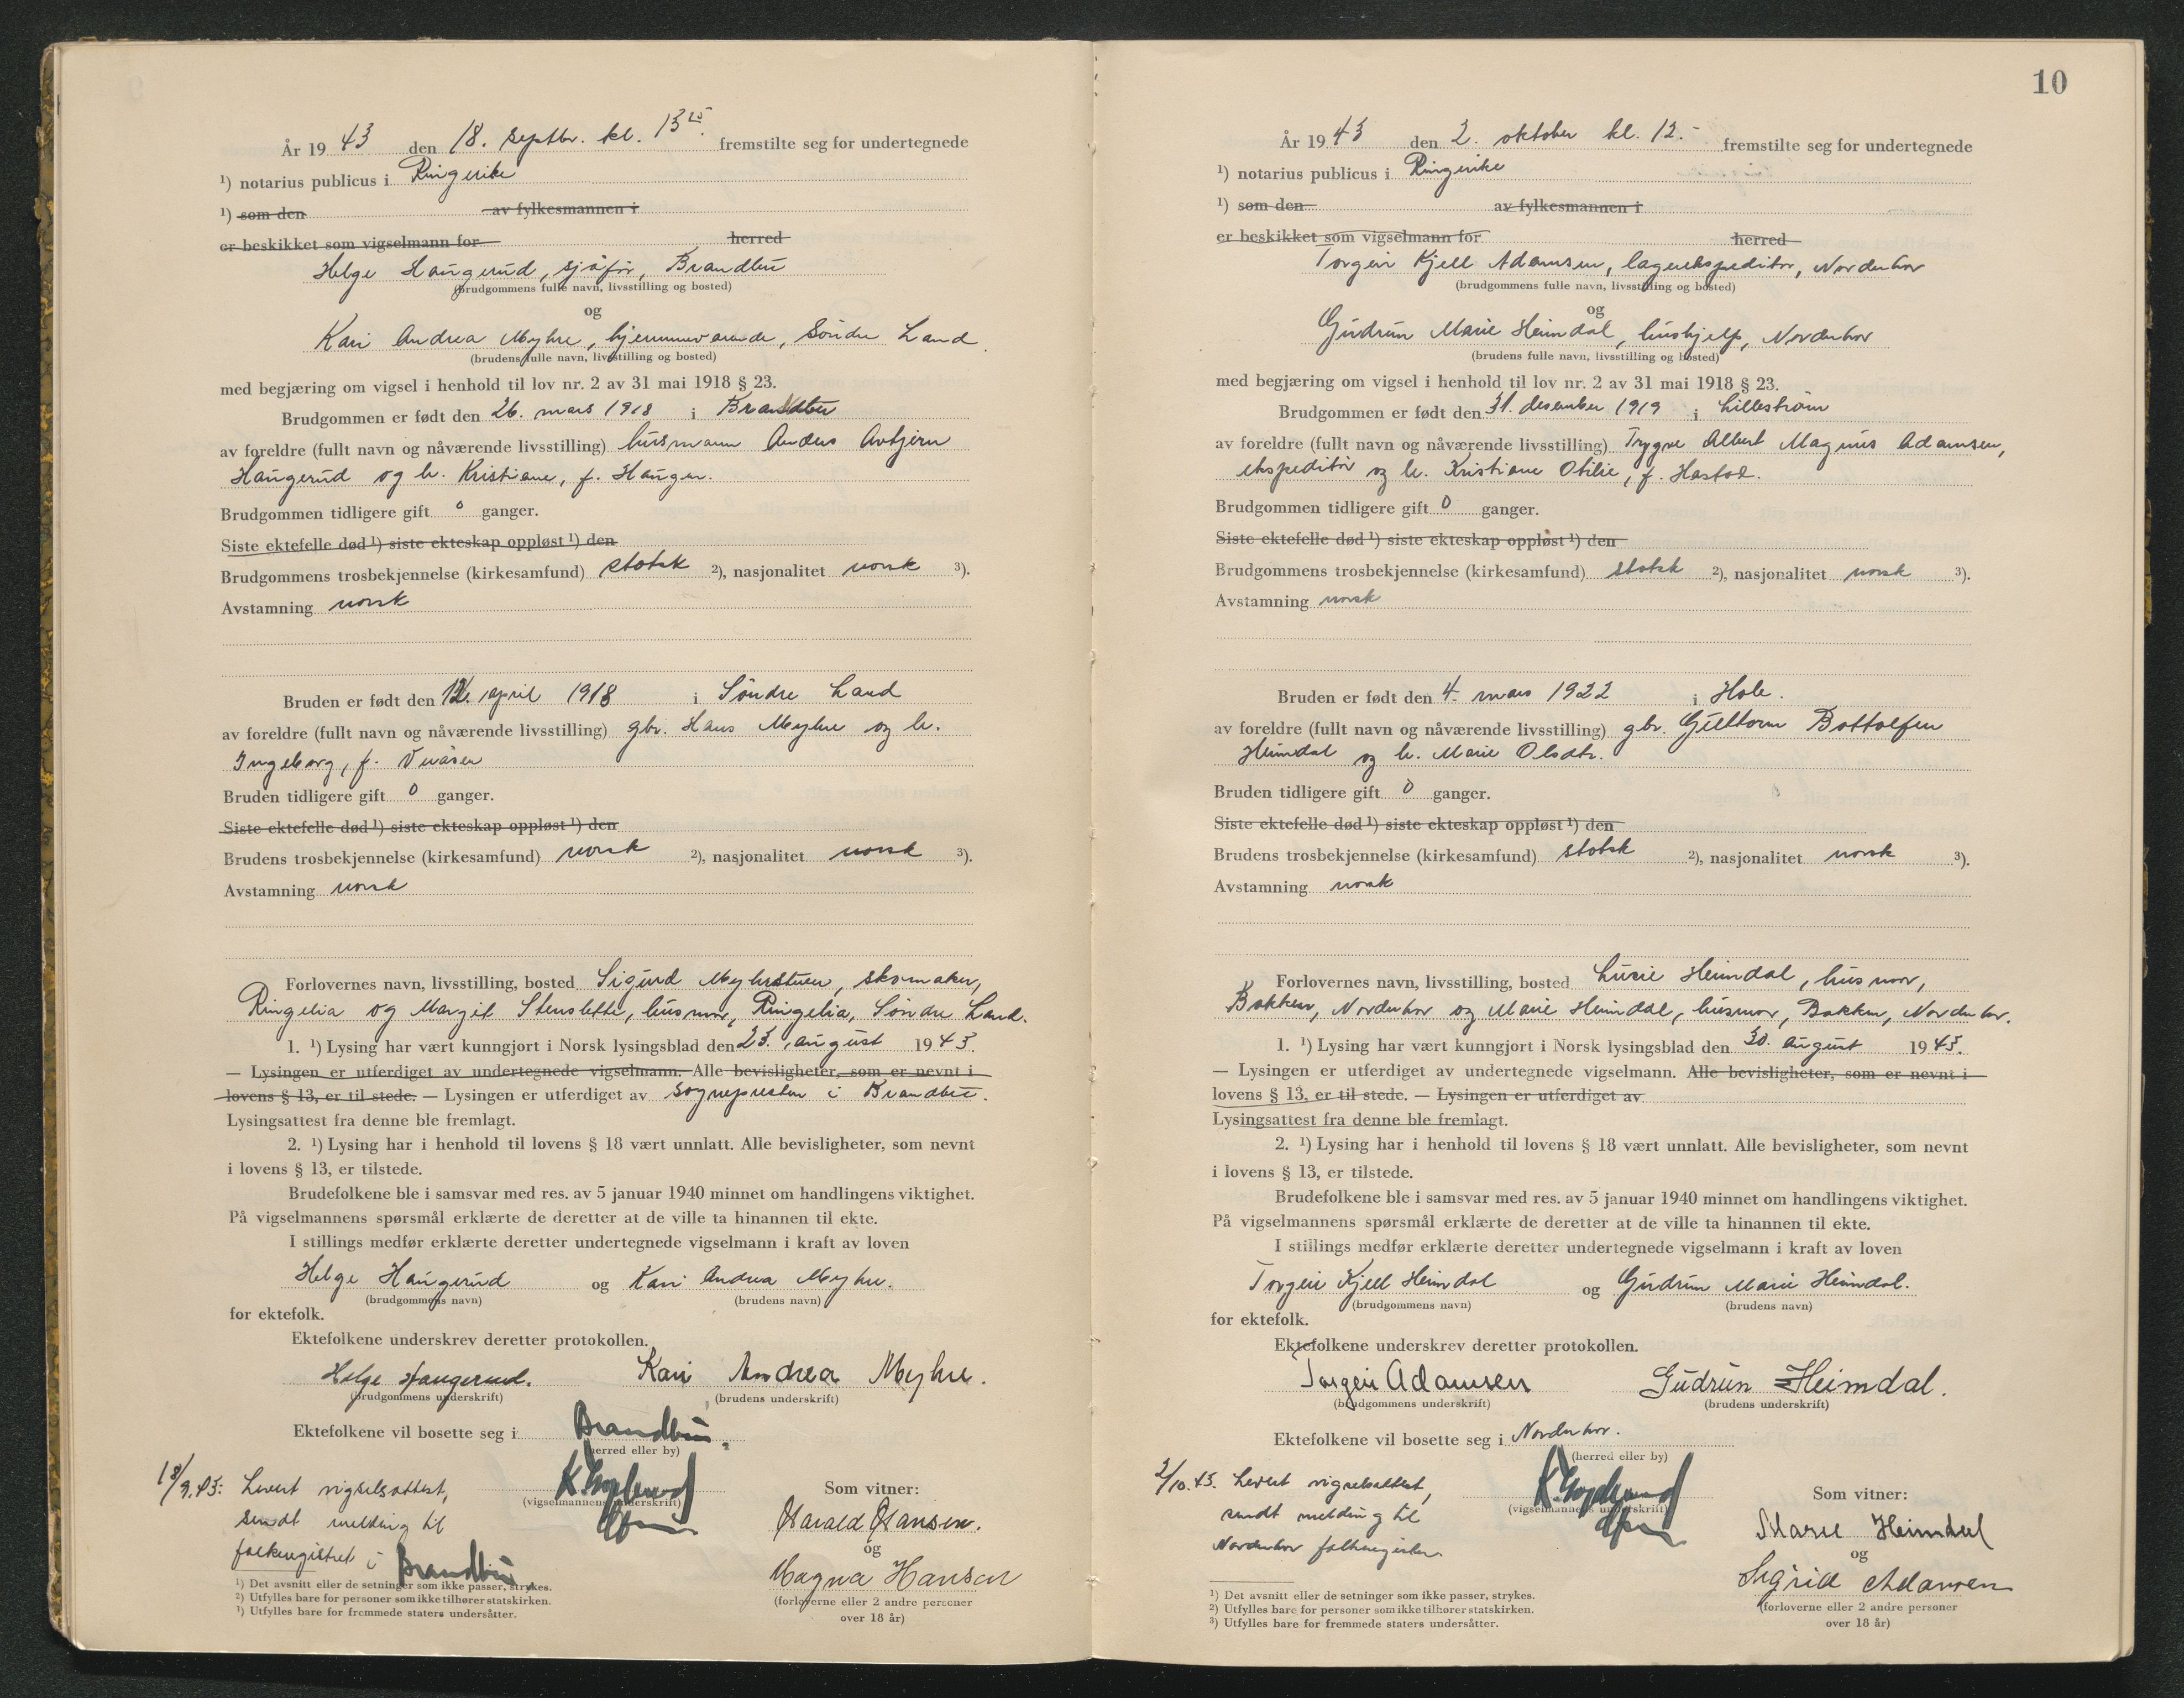 År 19 43 den 18. septbr. kl. 13 15. fremstilte seg for undertegnede
¹) notarius publicus i Ringerike
¹) som den av fylkesmannen i
er beskikket som vigselmann for herred
Helge Haugerud, sjåfør, Brandbu
(brudgommens fulle navn, livsstilling og bosted)
og
Kari Andrea Myhre, hjemmeværende, Søndre Land
(brudens fulle navn, livsstilling og bosted)
med begjæring om vigsel i henhold til lov nr. 2 av 31 mai 1918 § 23.
Brudgommen er født den 26. mars 1918 i Brandbu
av foreldre (fullt navn og nåværende livsstilling) husmann Anders Avtjern
Haugerud og h. Kristiane, f. Haugen.
Brudgommen tidligere gift 0 ganger.
Siste ektefelle død ¹) siste ekteskap oppløst ¹) den
Brudgommens trosbekjennelse (kirkesamfund) statsk ²), nasjonalitet norsk ³).
Avstamning norsk
Bruden er født den 12. april 1918 i Søndre Land
av foreldre (fullt navn og nåværende livsstilling) gbr. Hans Myhre og h.
Ingeborg, f.
Bruden tidligere gift 0 ganger.
Siste ektefelle død ¹) siste ekteskap oppløst ¹) den
Brudens trosbekjennelse (kirkesamfund) norsk ²), nasjonalitet norsk ³).
Avstamning norsk
Forlovernes navn, livsstilling, bosted Sigurd Myhrstuen, skomaker,
Ringelia og Margit Stenslette, husmor, Ringelia, Søndre Land.
1. ¹) Lysing har vært kunngjort i Norsk lysingsblad den 23. august 19 43.
— Lysingen er utferdiget av undertegnede vigselmann. Alle bevisligheter, som er nevnt i
lovens § 13, er til stede. — Lysingen er utferdiget av sognepresten i Brandbu.
Lysingsattest fra denne ble fremlagt.
2. ¹) Lysing har i henhold til lovens § 18 vært unnlatt. Alle bevisligheter, som nevnt
i lovens § 13, er tilstede.
Brudefolkene ble i samsvar med res. av 5 januar 1940 minnet om handlingens viktighet.
På vigselmannens spørsmål erklærte de deretter at de ville ta hinannen til ekte.
I stillings medfør erklærte deretter undertegnede vigselmann i kraft av loven
Helge Haugerud og Kari Andrea Myhre.
(brudgommens navn) (brudens navn)
for ektefolk.
Ektefolkene underskrev deretter protokollen.
Helge Haugerud. Kari Andrea Myhre.
(brudgommens underskrift) (brudens underskrift)
Ektefolkene vil bosette seg i Brandbu.
(herred eller by)
18/9.43: Levert vigselsattest,
sendt melding til
folkeregistret i Brandbu
(vigselmannens underskrift)
Som vitner:
Harald Hansen.
og
Magna Hansen
(forloverne eller 2 andre personer
over 18 år)
¹) Det avsnitt eller de setninger som ikke passer, strykes.
²) Utfylles bare for personer som ikke tilhører statskirken.
¹) Utfylles bare for fremmede staters undersåtter.
10
År 19 43 den 2. oktober kl. 12.- fremstilte seg for undertegnede
¹) notarius publicus i Ringerike
¹) som den av fylkesmannen i
er beskikket som vigselmann for herred
Torgeir Kjell Adamsen, lagerekspeditør, Norderhov
(brudgommens fulle navn, livsstilling og bosted)
og
Gudrun Marie Heimdal, hushjelp, Norderhov
(brudens fulle navn, livsstilling og bosted)
med begjæring om vigsel i henhold til lov nr. 2 av 31 mai 1918 § 23.
Brudgommen er født den 31. desember 1919 i Lillestrøm
av foreldre (fullt navn og nåværende livsstilling) Trygve Albert Magnus Adamsen,
ekspeditør og h. Kristiane Otilie, f. Hastad.
Brudgommen tidligere gift 0 ganger.
Siste ektefelle død ¹) siste ekteskap oppløst ¹) den
Brudgommens trosbekjennelse (kirkesamfund) statsk ²), nasjonalitet norsk ³).
Avstamning norsk
Bruden er født den 4. mars 1922 i Hole.
av foreldre (fullt navn og nåværende livsstilling) gbr. Gulltorm Bottolfsen
Heimdal og h. Marie Olsdtr.
Bruden tidligere gift 0 ganger.
Siste ektefelle død ¹) siste ekteskap oppløst ¹) den
Brudens trosbekjennelse (kirkesamfund) statsk ²), nasjonalitet norsk ³).
Avstamning norsk
Forlovernes navn, livsstilling, bosted Lucie Heimdal, husmor,
Bakken, Norderhov og Marie Heimdal, husmor, Bakken, Norderhov.
1. ¹) Lysing har vært kunngjort i Norsk lysingsblad den 30. august 19 43.
— Lysingen er utferdiget av undertegnede vigselmann. Alle bevisligheter, som er nevnt i
lovens § 13, er til stede. — Lysingen er utferdiget av
Lysingsattest fra denne ble fremlagt.
2. ¹) Lysing har i henhold til lovens § 18 vært unnlatt. Alle bevisligheter, som nevnt
i lovens § 13, er tilstede.
Brudefolkene ble i samsvar med res. av 5 januar 1940 minnet om handlingens viktighet.
På vigselmannens spørsmål erklærte de deretter at de ville ta hinannen til ekte.
I stillings medfør erklærte deretter undertegnede vigselmann i kraft av loven
Torgeir Kjell Heimdal og Gudrun Marie Heimdal.
(brudgommens navn) (brudens navn)
for ektefolk.
Ektefolkene underskrev deretter protokollen.
Torgeir Adamsen Gudrun Heimdal.
(brudgommens underskrift) (brudens underskrift)
Ektefolkene vil bosette seg i Norderhov.
(herred eller by)
2/10.43. Levert vigselsattest,
sendt melding til
Norderhov folkeregister.
(vigselmannens underskrift)
Som vitner:
Marie Heimdal
og
Sigrid Adamsen
(forloverne eller 2 andre personer
over 18 år)
¹) Det avsnitt eller de setninger som ikke passer, strykes.
²) Utfylles bare for personer som ikke tilhører statskirken.
³) Utfylles bare for fremmede staters undersåtter.